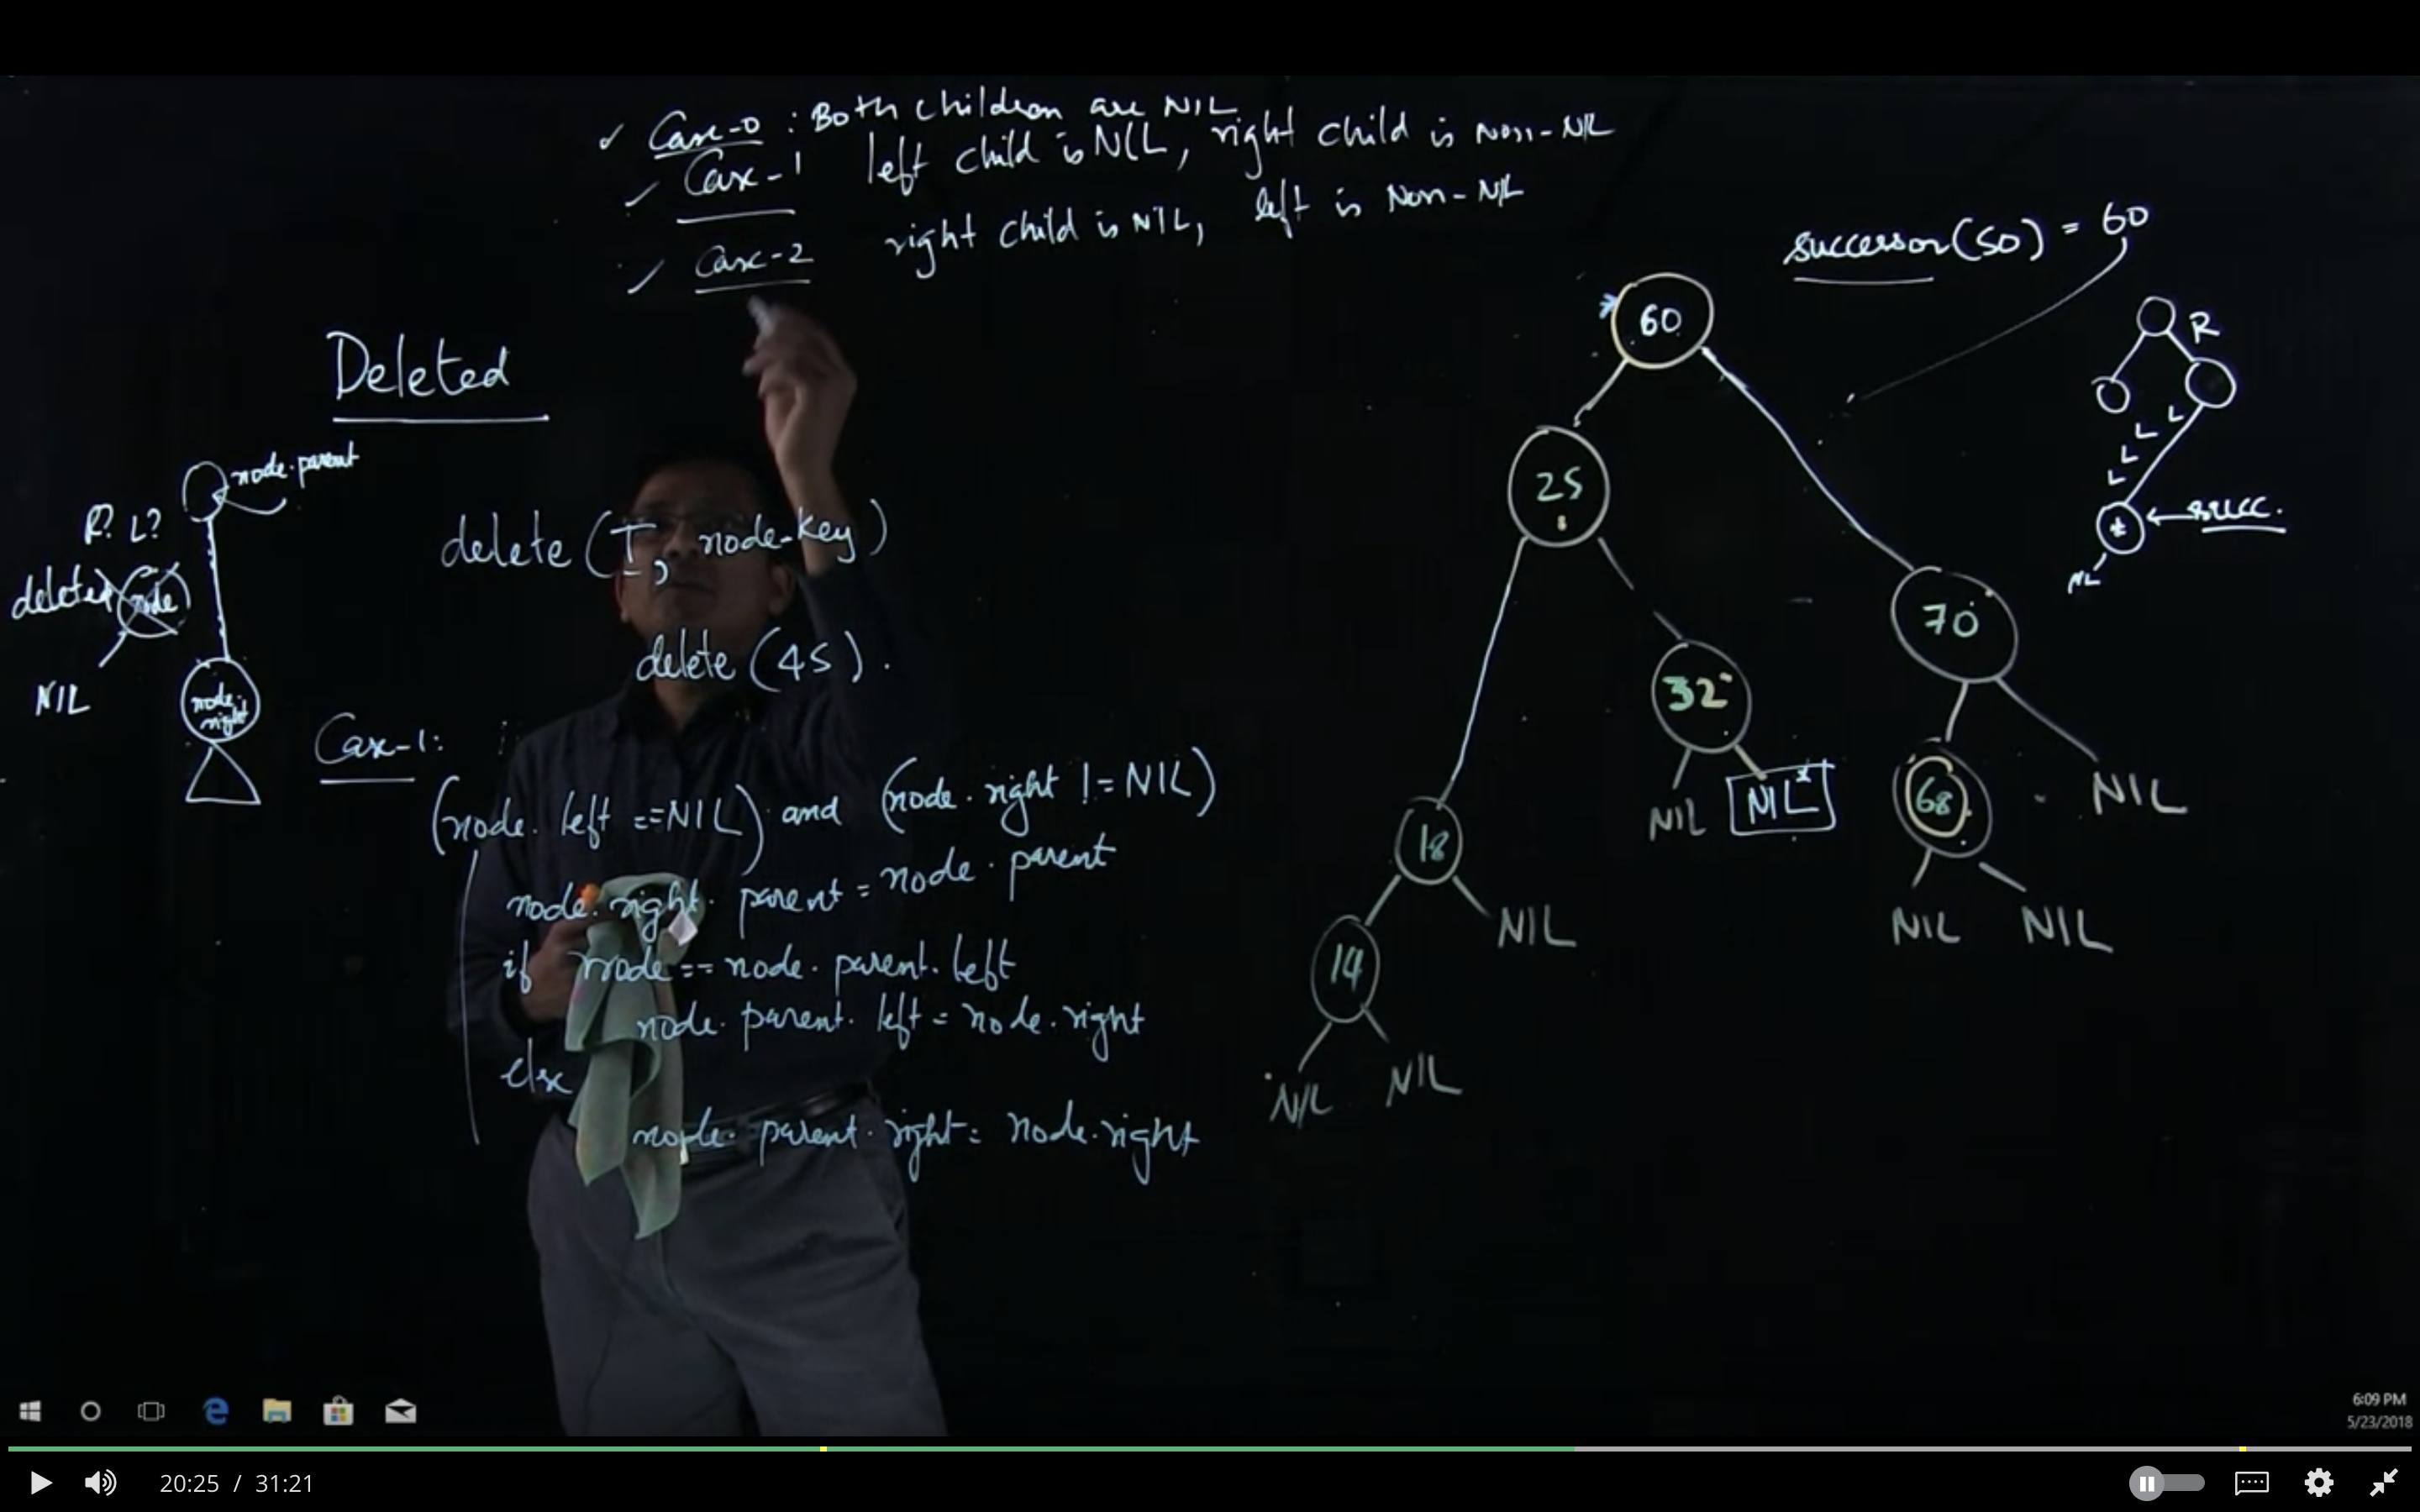 ✓ Case-0 : Both children are NIL
✓ Case-1 left child is NIL, right child is Non-NIL
✓ Case-2 right child is NIL, left is Non-NIL
successor(50) = 60
Deleted
node.parent
R? L?
deleted node
NIL
node.right
delete (T, node-key)
delete (45).
Case-1:
(node.left == NIL) and (node.right != NIL)
node.right.parent = node.parent
if node == node.parent.left
node.parent.left = node.right
else
node.parent.right = node.right
60
25
70
32
68
NIL
NIL NIL*
18
NIL
NIL NIL
14
NIL NIL
R
L
L
L
L
* ← succ.
NIL
6:09 PM
5/23/2018
20:25 / 31:21